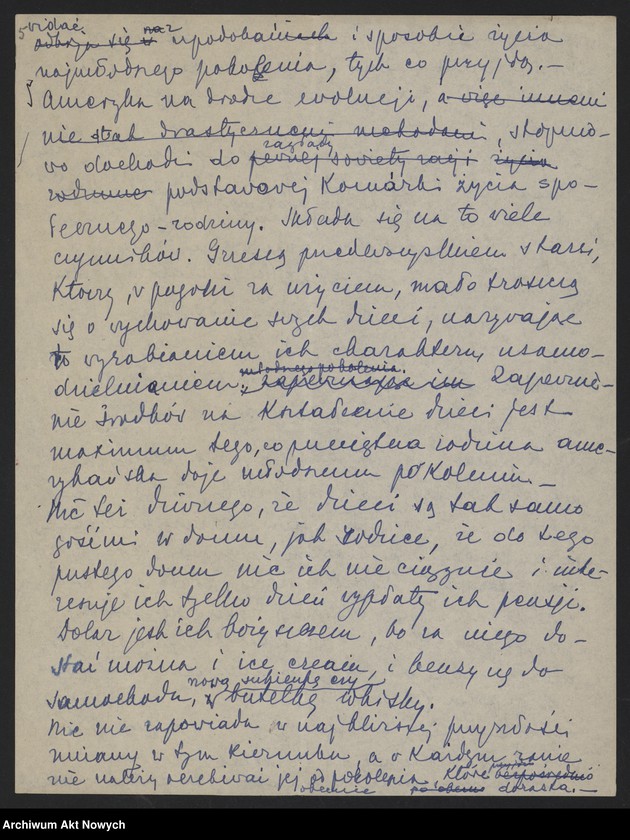 widać
odbija się w naz upodobaniach i sposobie życia
najmłodszego pokolenia, tych co przyjdą.—
Ameryka na drodze ewolucji, a więc innemi
nie tak drastycznemi metodami, stopnio-
wo dochodzi do pewnej sowietyzacji zagłady życia
rodzinnego podstawowej komórki życia spo-
łecznego - rodziny. Składa się na to wiele
czynników. Grzeszą przedewszystkiem starsi,
którzy, w pogoni za użyciem, mało troszczą
się o wychowanie swych dzieci, nazywając
to wyrabianiem ich charakteru, usamo-
dzielnianiem młodszego pokolenia. zapewniając im Zapewnie-
nie środków na kształcenie dzieci jest
maximum tego, co przeciętna rodzina ame-
rykańska daje młodszemu pokoleniu.—
Nic też dziwnego, że dzieci są tak samo
gośćmi w domu, jak rodzice, że do tego
pustego domu nic ich nie ciągnie i inte-
resuje ich tylko dzień wypłaty ich pensji.
Dolar jest ich bożyszczem, bo za niego do-
stać można i ice cream, i benzynę do
samochodu, nową sukienkę czy butelkę whisky.
Nic nie zapowiada w najbliższej przyszłości
zmiany w tym kierunku, a w każdym razie
nie należy oczekiwać jej od pokolenia, które bezpośrednio
obecnie dorasta.—
Archiwum Akt Nowych